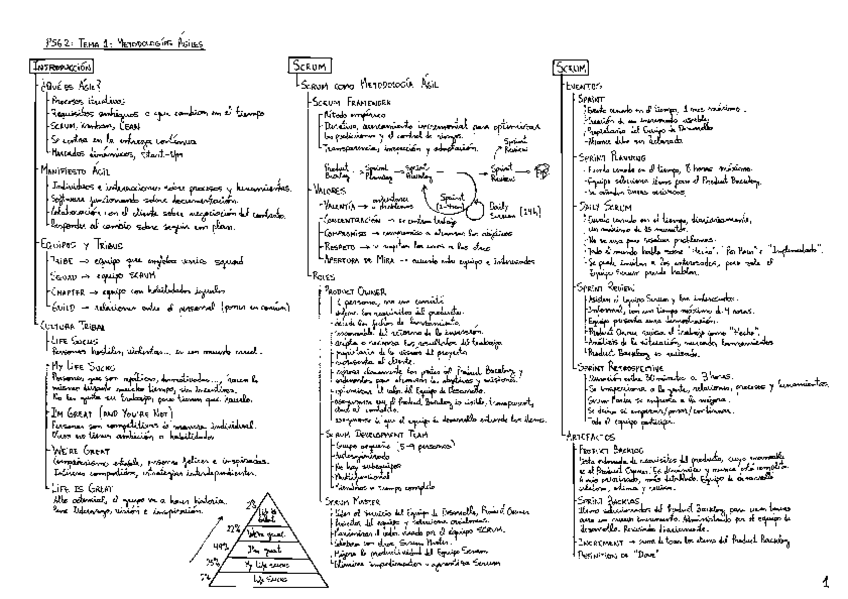 PSG2: TEMA 1: METODOLOGÍAS ÁGILES
INTRODUCCIÓN
¿QUÉ ES ÁGIL?
Procesos iterativos
Requisitos ambiguos o que cambian en el tiempo
SCRUM, Kanban, LEAN
Se centra en la entrega continua
Mercados dinámicos, Start-Ups
MANIFIESTO ÁGIL
Individuos e interacciones sobre procesos y herramientas.
Software funcionando sobre documentación.
Colaboración con el cliente sobre negociación del contrato.
Responder al cambio sobre seguir un plan.
EQUIPOS Y TRIBUS
TRIBE → equipo que engloba varios squad
SQUAD → equipo SCRUM
CHAPTER → equipo con habilidades iguales
GUILD → relaciones entre el personal
CULTURA TRIBAL
LIFE SUCKS
Personas hostiles, violentas... en un mundo cruel.
MY LIFE SUCKS
Personas que son apáticas,
mismo durante mucho tiempo, sin incentivos.
No les gusta su trabajo, pero tienen que hacerlo.
I'M GREAT (AND YOU'RE NOT)
Personas son competitivas de manera individual.
Otros no tienen ambición o habilidades
WE'RE GREAT
Compañerismo estable, personas felices e inspiradas.
Intereses compartidos, estrategias interdependientes.
LIFE IS GREAT
Alto potencial, el grupo va a hacer historia.
Puro liderazgo, visión e inspiración.
2% Life is Great
22% We're great
49% I'm great
25% My life sucks
2% Life Sucks
SCRUM
SCRUM COMO METODOLOGÍA ÁGIL
SCRUM FRAMEWORK
Método empírico
Iterativo, acercamiento incremental para optimizar
las predicciones y el control de riesgos.
Transparencia, inspección y adaptación.
Product Backlog → Sprint Planning → Sprint Backlog → Sprint Review
Sprint Review
Sprint (1-4 sem)
Daily Scrum (24h)
VALORES
VALENTÍA → enfrentarse a problemas
CONCENTRACIÓN → se centran trabajo
COMPROMISO → compromiso a alcanzar los objetivos
RESPETO →
APERTURA DE MIRA → acuerdo entre equipo e interesados
ROLES
PRODUCT OWNER
1 persona, no un comité
definir los requisitos del producto.
decide las fechas de lanzamiento.
responsable del retorno de la inversión.
acepta o rechaza los resultados del trabajo
propietario de la visión del proyecto
representa al cliente.
expresar claramente los ítems del Product Backlog y
ordenarlos para alcanzar los objetivos y misiones.
optimizar el valor del Equipo de Desarrollo.
asegurarse que el Product Backlog es visible, transparente,
claro al completo.
asegurarse de que el equipo de desarrollo entiende los ítems.
SCRUM DEVELOPMENT TEAM
Grupo pequeño (5-9 personas)
Autoorganizado
No hay subequipos
Multifuncional
Miembros a tiempo completo
SCRUM MASTER
Líder al servicio del Equipo de Desarrollo, Product Owner
Facilitar del equipo y soluciona problemas.
Maximizar el valor creado por el equipo SCRUM.
Colabora con otros Scrum Master.
Mejora la productividad del Equipo Scrum
Elimina impedimentos y garantiza Scrum
SCRUM
EVENTOS
SPRINT
Evento cerrado en el tiempo, 1 mes máximo.
Creación de un incremento usable.
Propietario del Equipo de Desarrollo
Alcance debe ser
SPRINT PLANNING
Evento cerrado en el tiempo, 8 horas máximo.
Equipo selecciona ítems para el Product Backlog.
DAILY SCRUM
Evento cerrado en el tiempo, diariamente,
un máximo de 15 minutos.
No se usa para resolver problemas.
Todo el mundo habla sobre "Hecho", "Por Hacer" e "Implementado".
Se puede invitar a los interesados, pero solo el
Equipo Scrum puede hablar.
SPRINT REVIEW
Asisten el Equipo Scrum y los interesados.
Informal, con un tiempo máximo de 4 horas.
Equipo presenta una demostración.
Product Owner revisa el trabajo como "Hecho".
Análisis de la situación,
Product Backlog es revisado.
SPRINT RETROSPECTIVE
Duración entre 30 minutos a 3 horas.
Se inspecciona a la gente, relaciones, procesos y herramientas.
Scrum Master se enfrenta a la mejora.
Se decide si empezar/parar/continuar.
Todo el equipo participa.
ARTEFACTOS
PRODUCT BACKLOG
Lista ordenada de requisitos del producto, cuyo responsable
es el Product Owner. Es dinámico y nunca está completo.
A más prioridad, más detallado. Equipo de desarrollo
SPRINT BACKLOG
Ítems seleccionados del Product Backlog para
un nuevo incremento. Administrado por el equipo de
desarrollo. Revisado diariamente.
INCREMENT → suma de todos los ítems del Product Backlog
DEFINITION OF "DONE"
1